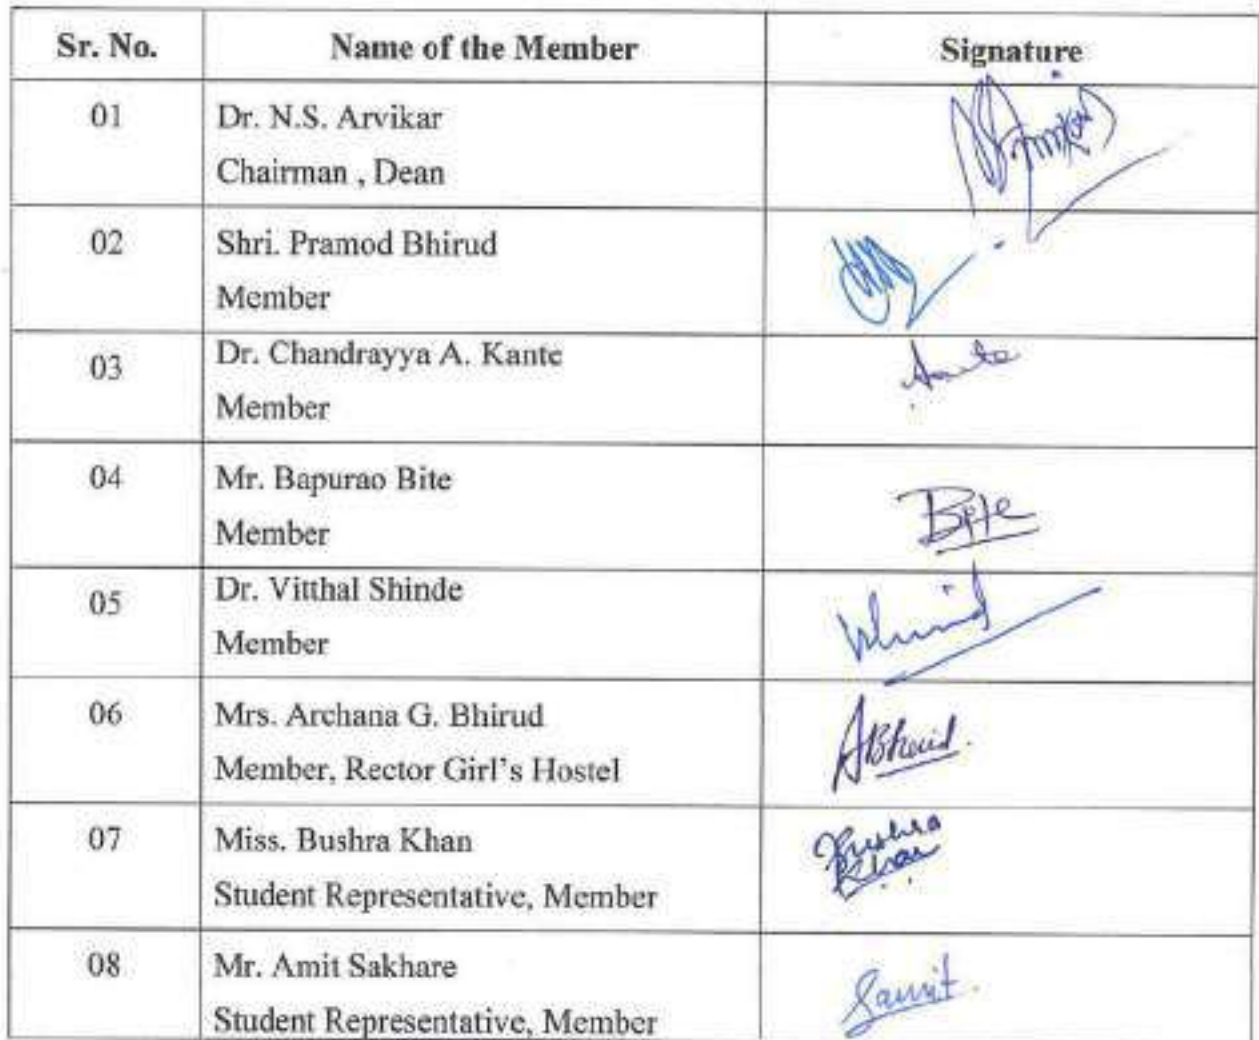 Sr. No. Name of the Member Signature
01 Dr. N.S. Arvikar
Chairman , Dean
02 Shri. Pramod Bhirud
Member
03 Dr. Chandrayya A. Kante
Member
04 Mr. Bapurao Bite
Member Bite
05 Dr. Vitthal Shinde
Member
06 Mrs. Archana G. Bhirud
Member, Rector Girl's Hostel ABhirud.
07 Miss. Bushra Khan Bushra
Student Representative, Member Khan
08 Mr. Amit Sakhare
Student Representative, Member